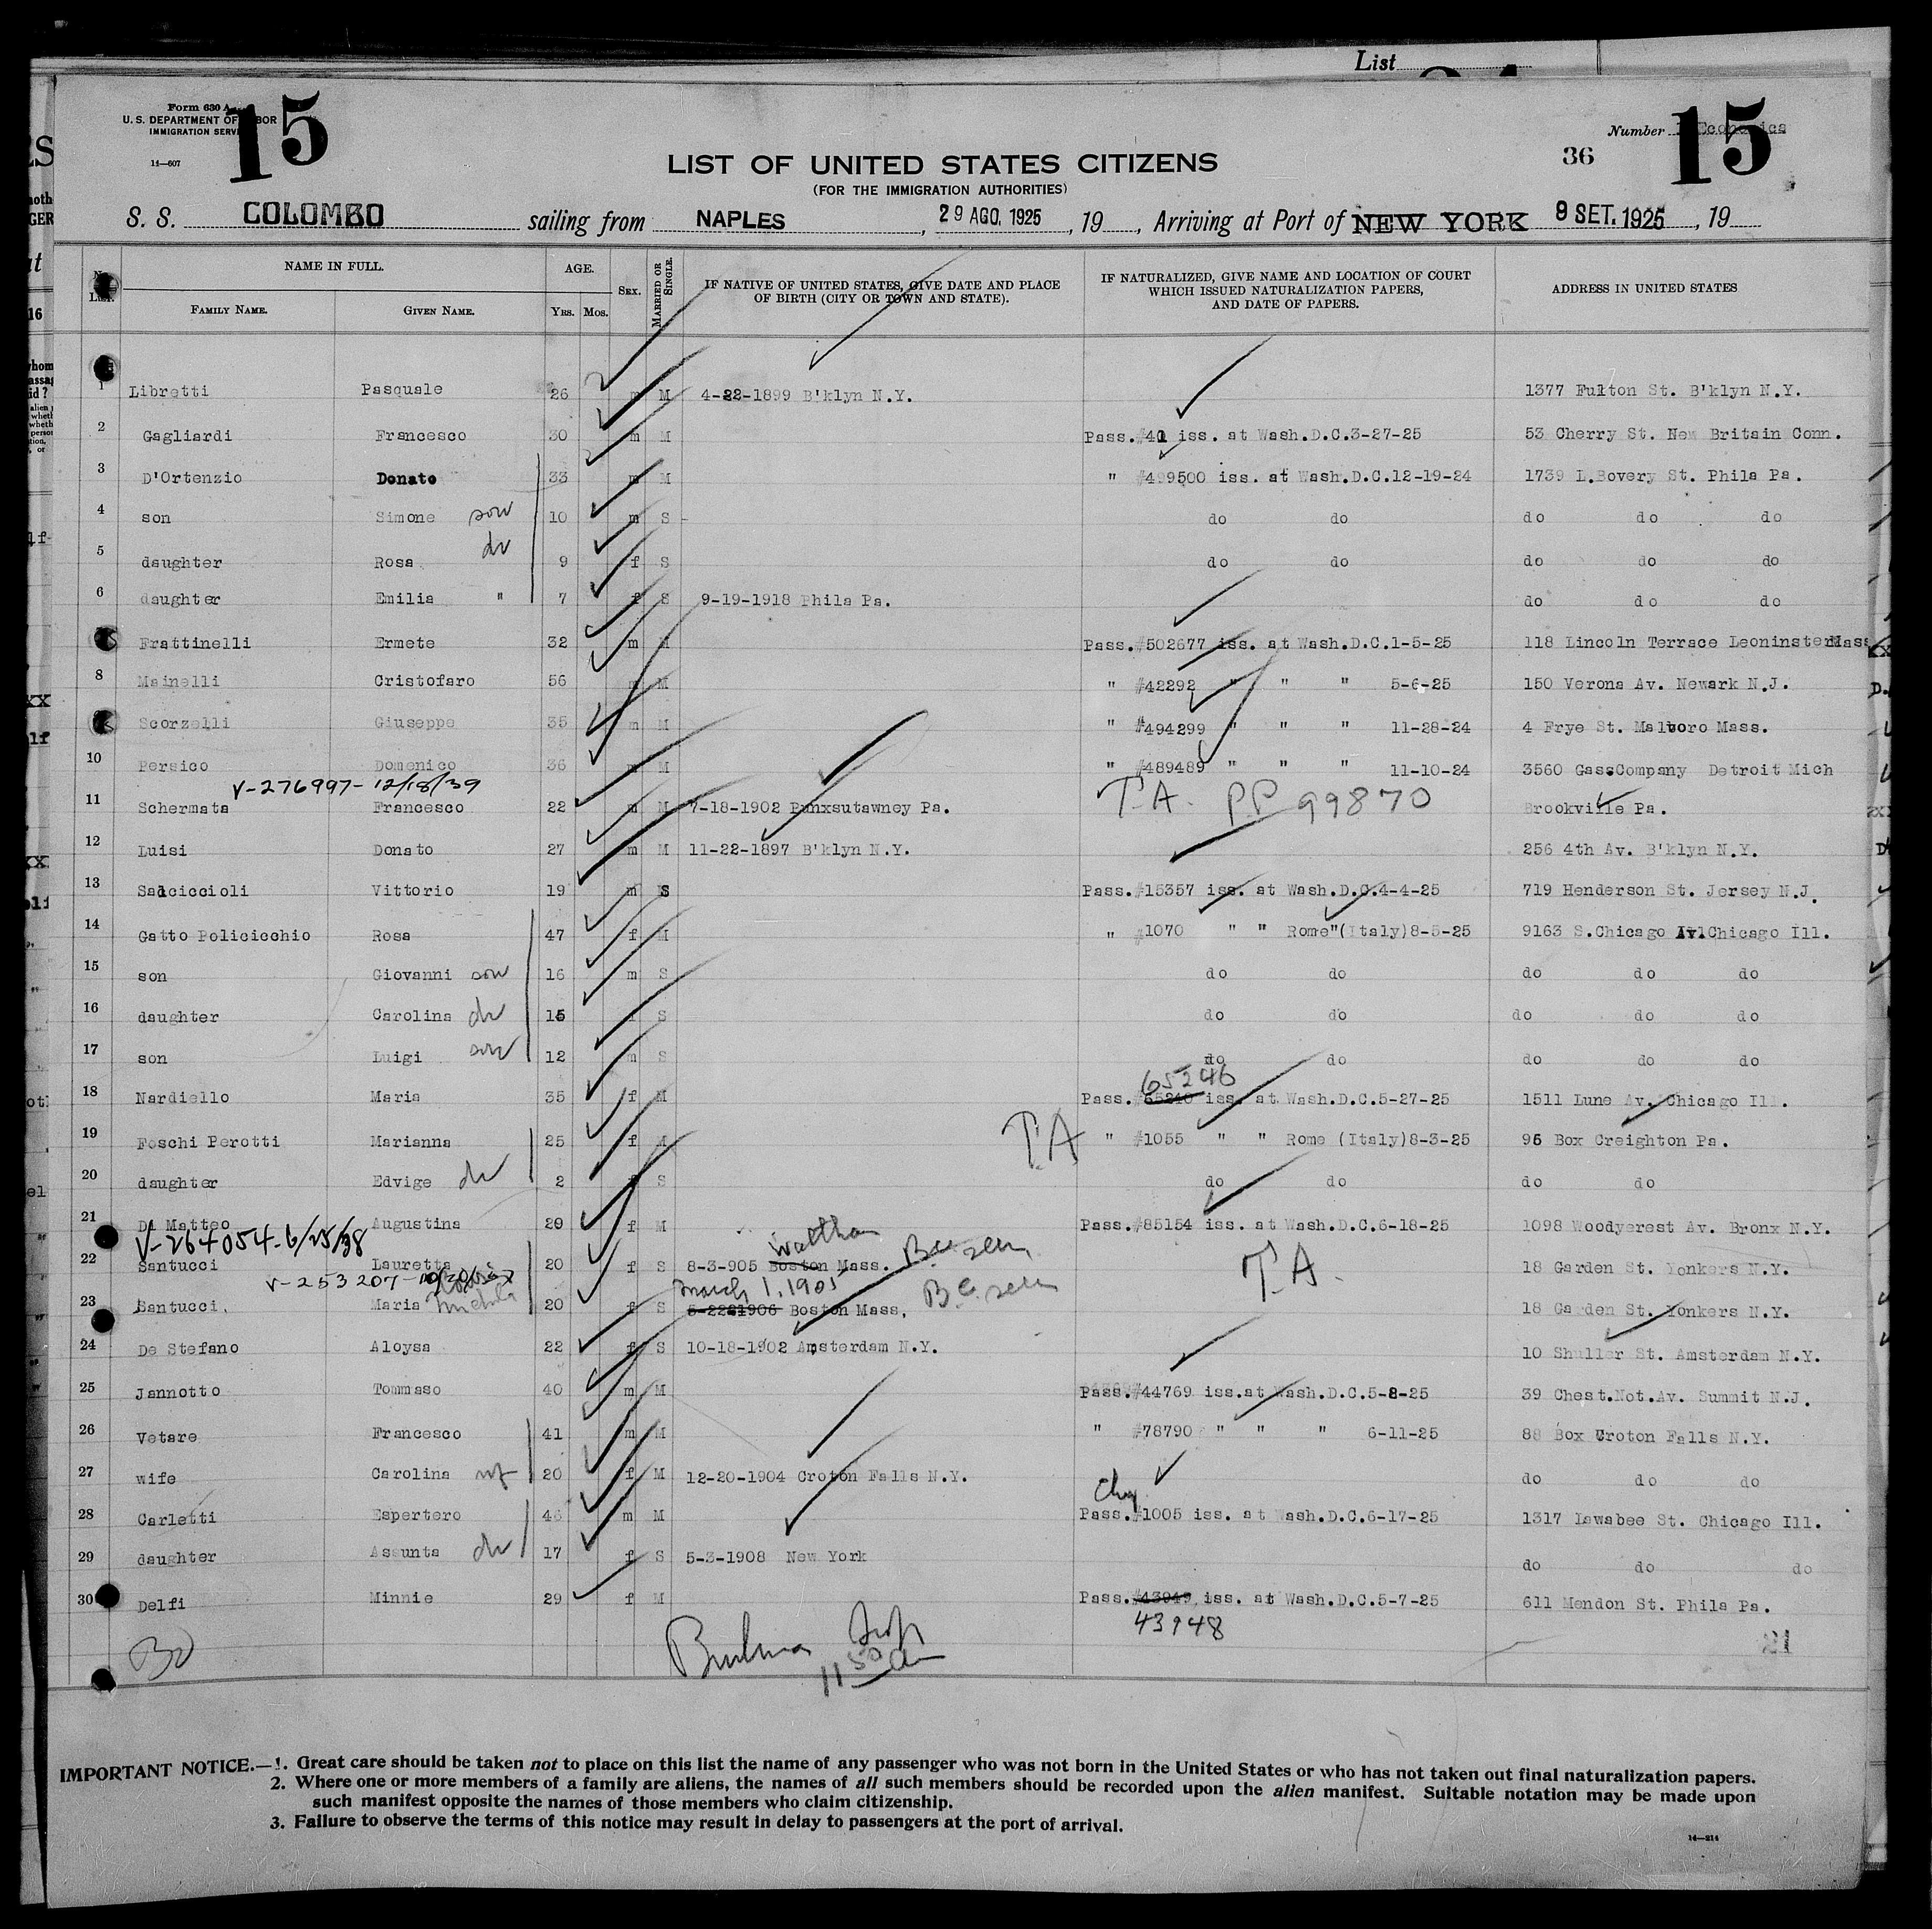 List
Form 630 A
U. S. DEPARTMENT OF LABOR
IMMIGRATION SERVICE
14—607
15
Number
36
15
LIST OF UNITED STATES CITIZENS
(FOR THE IMMIGRATION AUTHORITIES)
S. S. COLOMBO sailing from NAPLES, 29 AGO. 1925, 19 , Arriving at Port of NEW YORK 9 SET. 1925, 19
NAME IN FULL. AGE. SEX. MARRIED OR SINGLE. IF NATIVE OF UNITED STATES, GIVE DATE AND PLACE OF BIRTH (CITY OR TOWN AND STATE). IF NATURALIZED, GIVE NAME AND LOCATION OF COURT WHICH ISSUED NATURALIZATION PAPERS, AND DATE OF PAPERS. ADDRESS IN UNITED STATES
FAMILY NAME. GIVEN NAME. YRS. MOS.
1 Libretti Pasquale 26 m M 4-22-1899 B'klyn N.Y. 1377 Fulton St. B'klyn N.Y.
2 Gagliardi Francesco 30 m M Pass.#401 iss. at Wash.D.C.3-27-25 53 Cherry St. New Britain Conn.
3 D'Ortenzio Donato 33 m M " #499500 iss. at Wash.D.C.12-19-24 1739 L.Bovery St. Phila Pa.
4 son Simone son 10 m S - do do do do do
5 daughter Rosa dr 9 f S do do do do do
6 daughter Emilia " 7 f S 9-19-1918 Phila Pa. do do do
Frattinelli Ermete 32 m M Pass.#502677 iss. at Wash.D.C.1-5-25 118 Lincoln Terrace Leoninster Mass
8 Mainelli Cristofaro 56 m M " #42292 " " " 5-6-25 150 Verona Av. Newark N.J.
Scorzelli Giuseppe 35 m M " #494299 " " " 11-28-24 4 Frye St. Malboro Mass.
10 Persico Domenico 36 m M " #489489 " " " 11-10-24 3560 Gas.Company Detroit Mich
V-276997- 12/18/39
11 Schermata Francesco 22 m M 7-18-1902 Punxsutawney Pa. T.A. P.P 99870 Brookville Pa.
12 Luisi Donato 27 m M 11-22-1897 B'klyn N.Y. 256 4th Av. B'klyn N.Y.
13 Salciccioli Vittorio 19 m S Pass.#15357 iss. at Wash.D.C.4-4-25 719 Henderson St. Jersey N.J.
14 Gatto Policicchio Rosa 47 f M " #1070 " " Rome"(Italy)8-5-25 9163 S.Chicago Av.Chicago Ill.
15 son Giovanni son 16 m S do do do do do
16 daughter Carolina dr 15 f S do do do do do
17 son Luigi son 12 m S do do do do do
65246
18 Nardiello Maria 35 f M Pass.#65240 iss. at Wash.D.C.5-27-25 1511 Lune Av. Chicago Ill.
19 Foschi Perotti Marianna 25 f M T.A " #1055 " " Rome (Italy)8-3-25 96 Box Creighton Pa.
20 daughter Edvige dr 2 f S do do do do
21 Di Matteo Augustina 29 f M Pass.#85154 iss. at Wash.D.C.6-18-25 1098 Woodycrest Av. Bronx N.Y.
V-264054-6/25/38 Waltham
22 Santucci Lauretta 20 f S 8-3-905 Boston Mass. B.C. seen T.A. 18 Garden St. Yonkers N.Y.
V-253207- March 1, 1905
23 Santucci, Maria 20 f S 5-22-1906 Boston Mass, B.C. seen 18 Garden St. Yonkers N.Y.
24 De Stefano Aloysa 22 f S 10-18-1902 Amsterdam N.Y. 10 Shuller St. Amsterdam N.Y.
25 Jannotto Tommaso 40 m M Pass.#44769 iss.at Wash.D.C.5-8-25 39 Chest.Not.Av. Summit N.J.
26 Vetare Francesco 41 m M " #78790 " " " 6-11-25 88 Box Croton Falls N.Y.
27 wife Carolina wf 20 f M 12-20-1904 Croton Falls N.Y. do do do
28 Carletti Espertero 46 m M Pass.#1005 iss. at Wash.D.C.6-17-25 1317 Lawabee St. Chicago Ill.
29 daughter Assunta dr 17 f S 5-3-1908 New York do do do
30 Delfi Minnie 29 f M Pass.#43949 iss. at Wash.D.C.5-7-25 611 Mendon St. Phila Pa.
43948
30
11 50 am
21
IMPORTANT NOTICE.—1. Great care should be taken not to place on this list the name of any passenger who was not born in the United States or who has not taken out final naturalization papers.
2. Where one or more members of a family are aliens, the names of all such members should be recorded upon the alien manifest. Suitable notation may be made upon
such manifest opposite the names of those members who claim citizenship.
3. Failure to observe the terms of this notice may result in delay to passengers at the port of arrival.
14—214